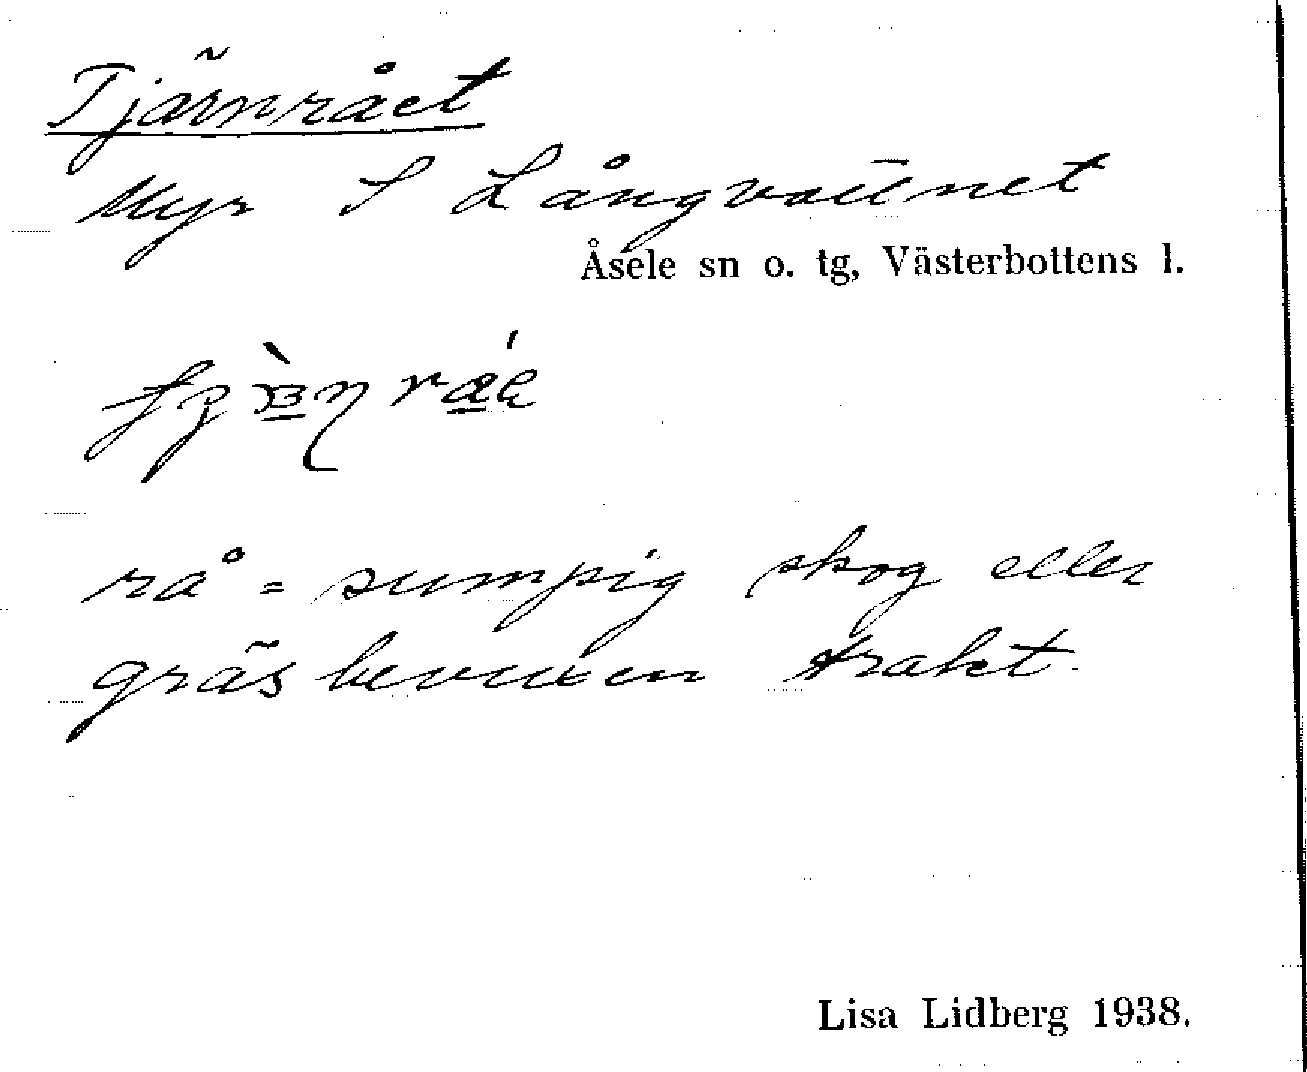 Tjärnrået
Myr S Långvattnet
Åsele sn o. tg, Västerbottens l.
rå = sumpig skog eller
gräsbevuxen trakt.
Lisa Lidberg 1938.